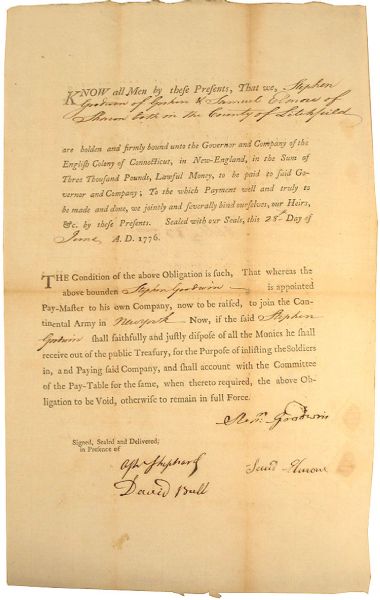 KNOW all Men by these Presents, That we, Stephen
Goodwin of Goshen & Samuel Elmore of
Sharon both in the County of Litchfield
are holden and firmly bound unto the Governor and Company of the
English Colony of Connecticut, in New-England, in the Sum of
Three Thousand Pounds, Lawful Money, to be paid to said Go-
vernor and Company; To the which Payment well and truly to
be made and done, we jointly and severally bind ourselves, our Heirs,
&c. by these Presents. Sealed with our Seals, this 28th Day of
June, A. D. 1776.
THE Condition of the above Obligation is such, That whereas the
above bounden Stephen Goodwin is appointed
Pay-Master to his own Company, now to be raised, to join the Con-
tinental Army in Newyork Now, if the said Stephen
Goodwin shall faithfully and justly dispose of all the Monies he shall
receive out of the public Treasury, for the Purpose of inlisting the Soldiers
in, and Paying said Company, and shall account with the Committee
of the Pay-Table for the same, when thereto required, the above Ob-
ligation to be Void, otherwise to remain in full Force.
Goodwin
Signed, Sealed and Delivered,
in Presence of
David Bull